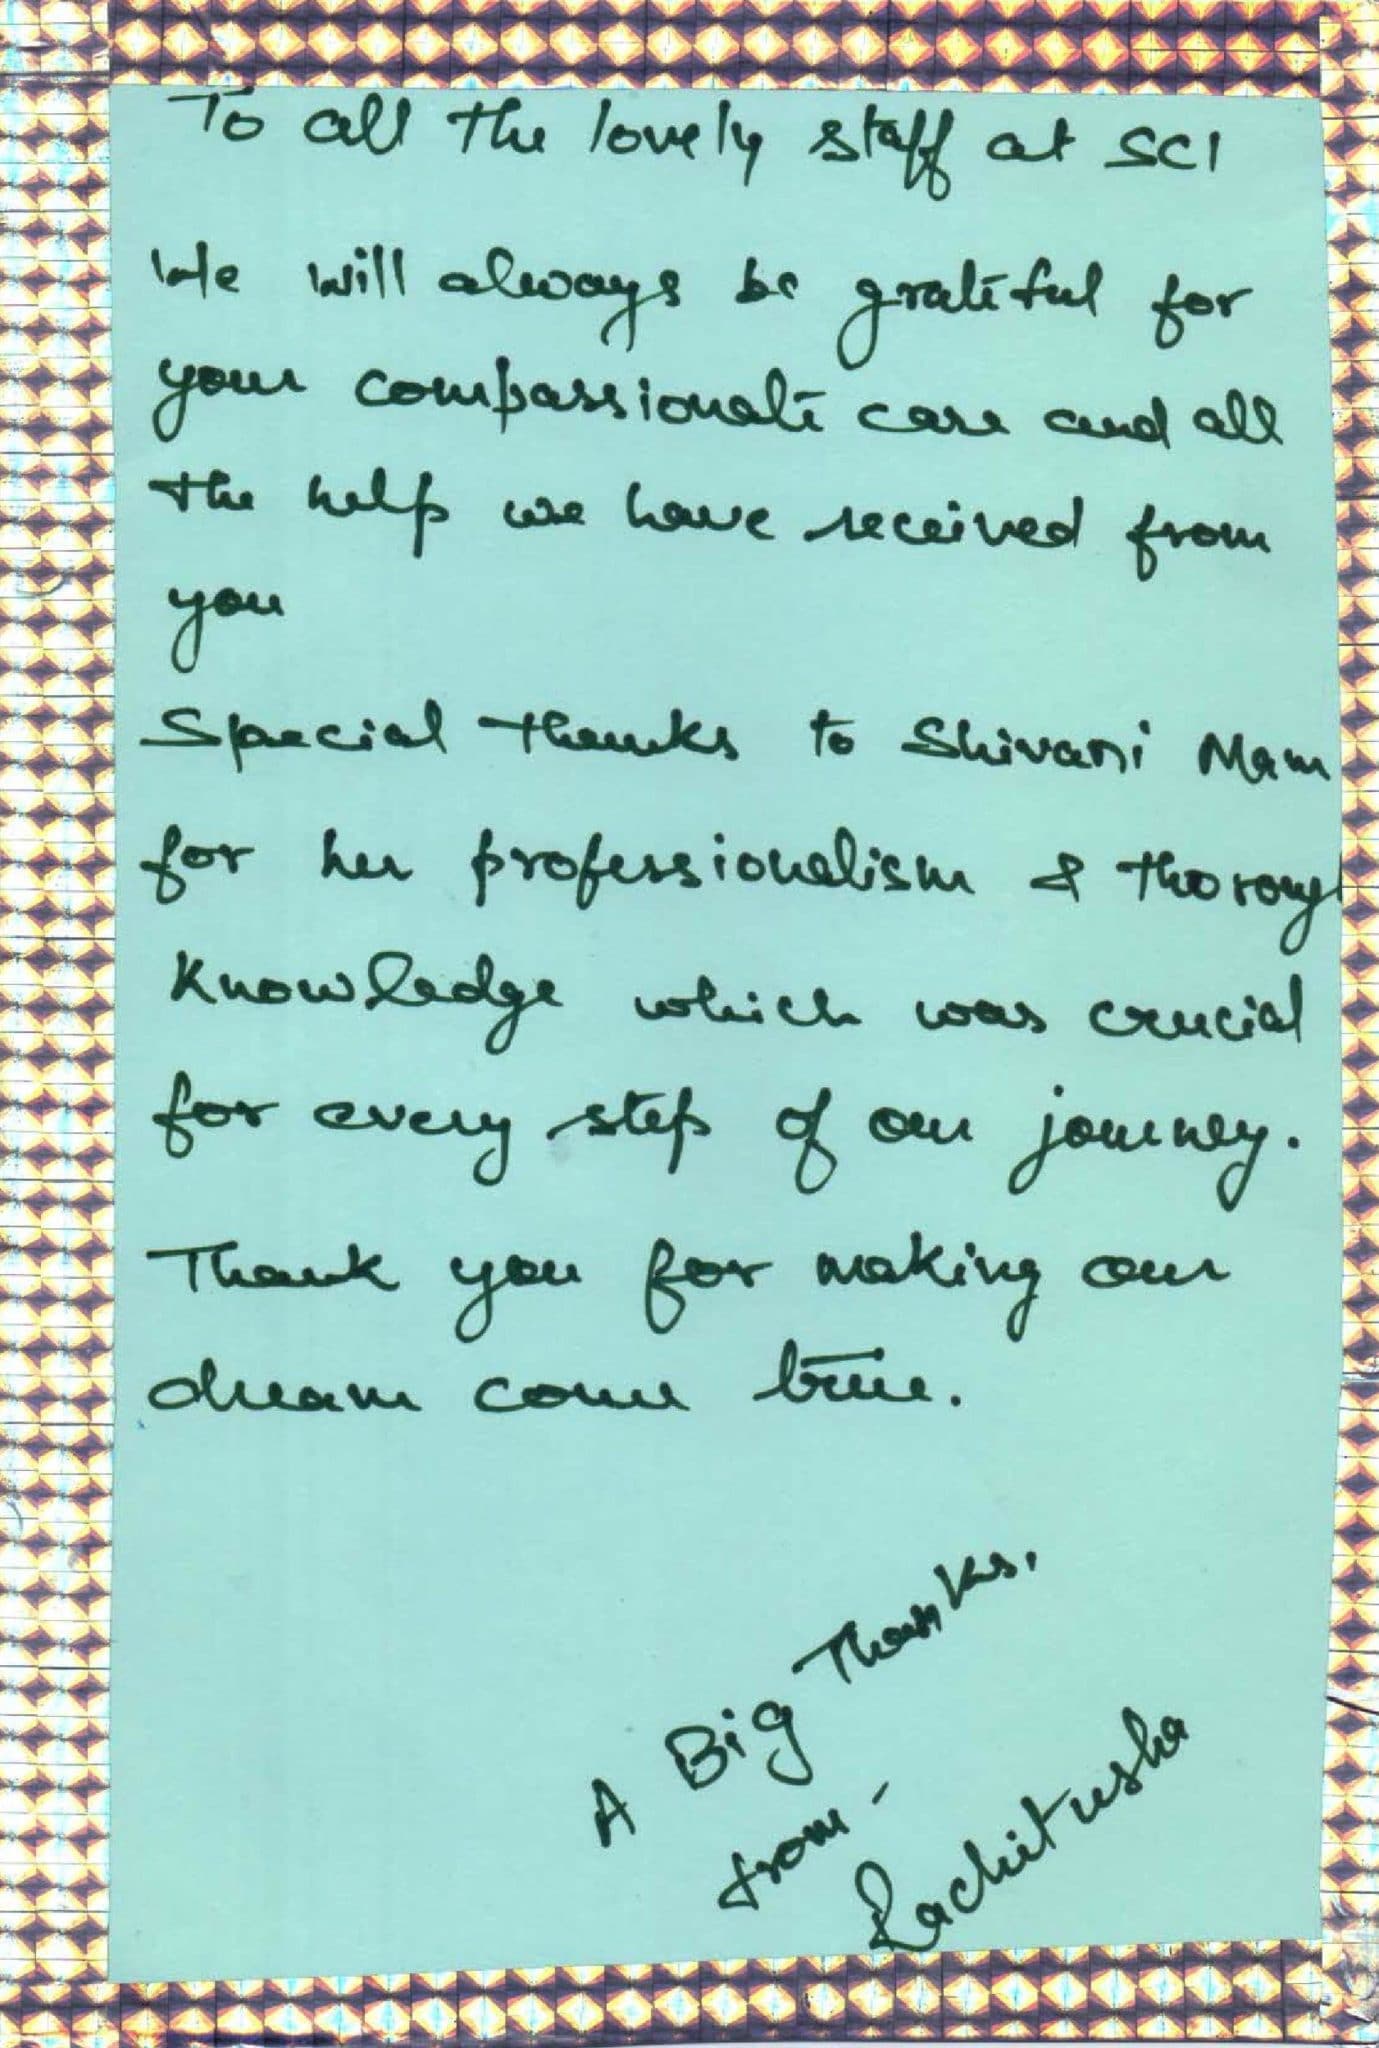 To all the lovely staff at SCI
We will always be grateful for
your compassionate care and all
the help we have received from
you
Special thanks to Shivani Mam
for her professionalism & thorough
Knowledge which was crucial
for every step of our journey.
Thank you for making our
dream come true.
A Big Thanks.
from -
Rachitusha